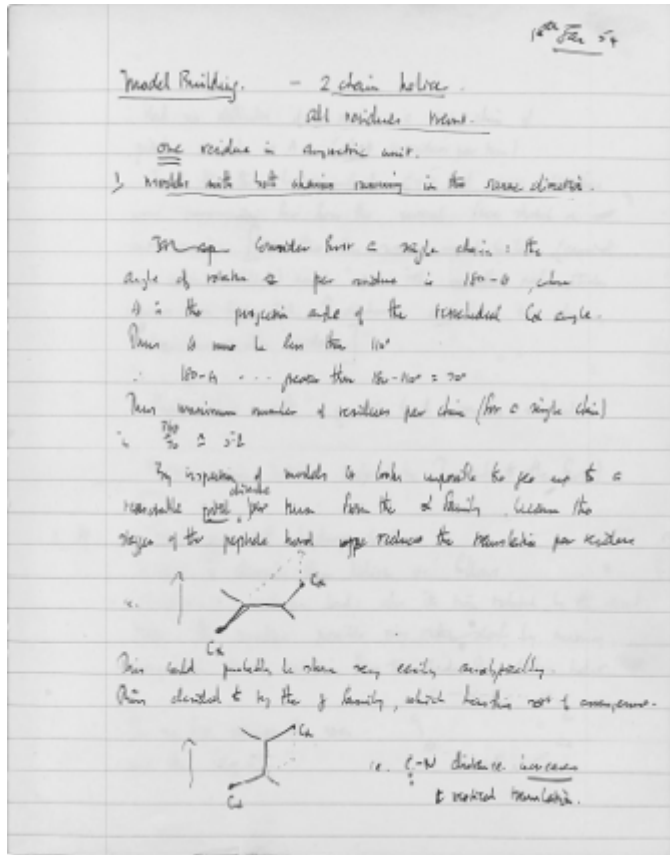 Jan 54
Model Building. - 2 chain helices.
all residues trans.
one residue in asymmetric unit.
1) models with both chains running in the same direction.
Consider first a single chain: the
angle of rotation per residue is 180-θ, where
θ is the projection angle of the tetrahedral Cα angle.
Thus θ must be less than 110°
∴ 180-θ ... greater than 180-110° = 70°
Thus maximum number of residues per chain (for a single chain)
is 360/70 ≏ 5.1
By inspection of models it looks impossible to get up to a
distance
reasonable per turn from the α family, because the
of the peptide bond reduces the translation per residue
Cα
i.e.
Cα
This could probably be shown very easily analytically.
Thus decided to try the γ family, which has this sort of arrangement.
Cα
i.e. C-N distance increases
Cα
vertical translation.